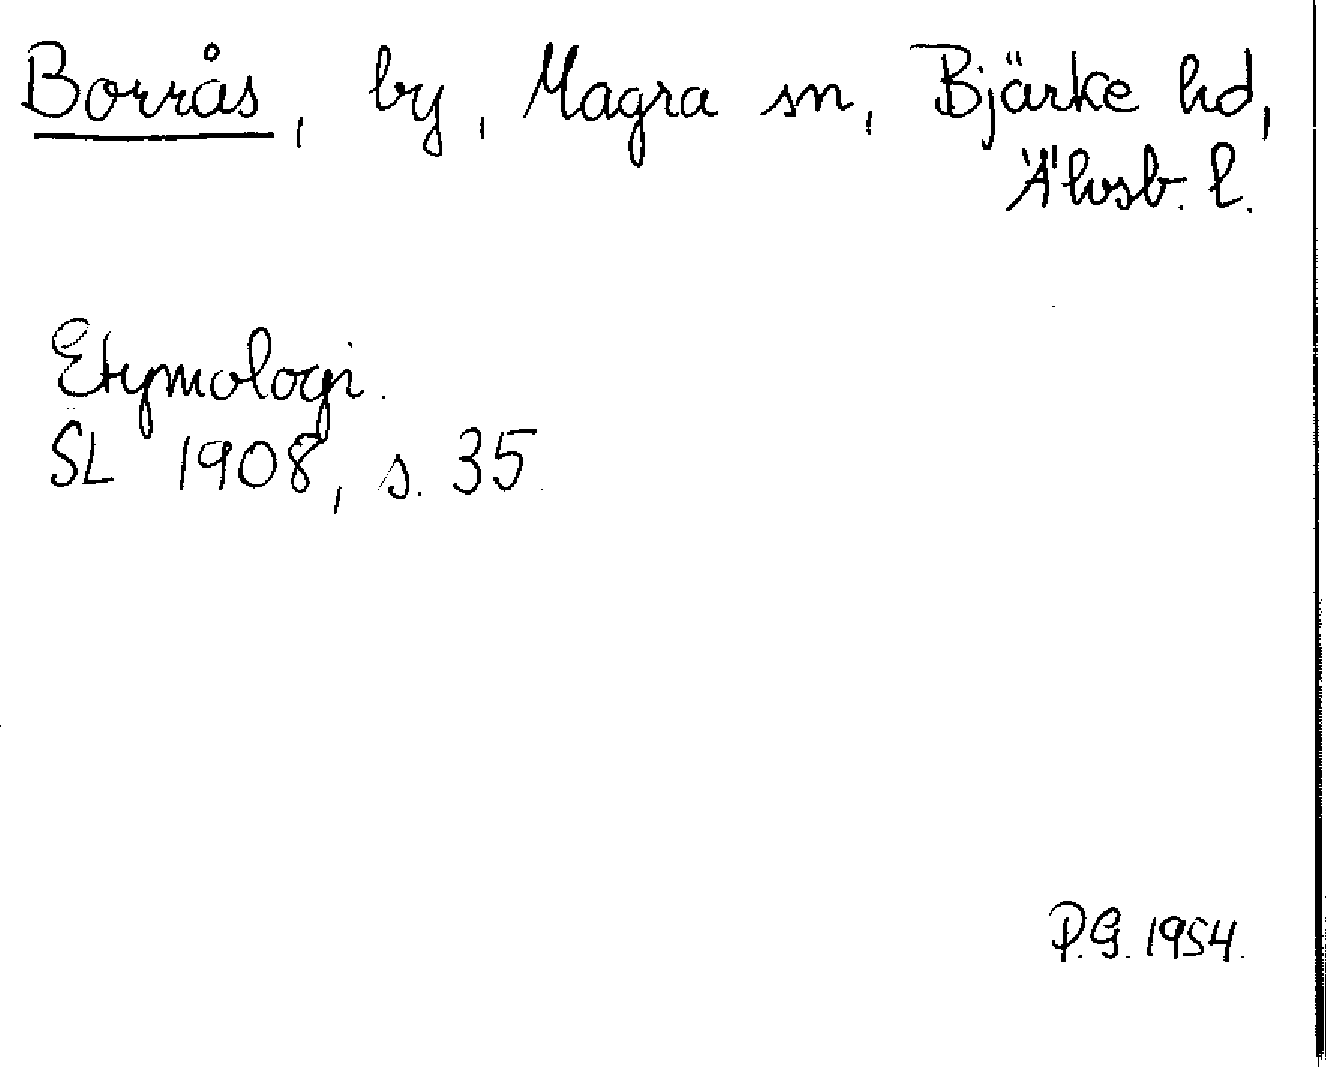 Borrås, by, Magra sn, Bjärke hd,
Älvsb. l.
Etymologi.
SL 1908, s. 35.
P.G. 1954.